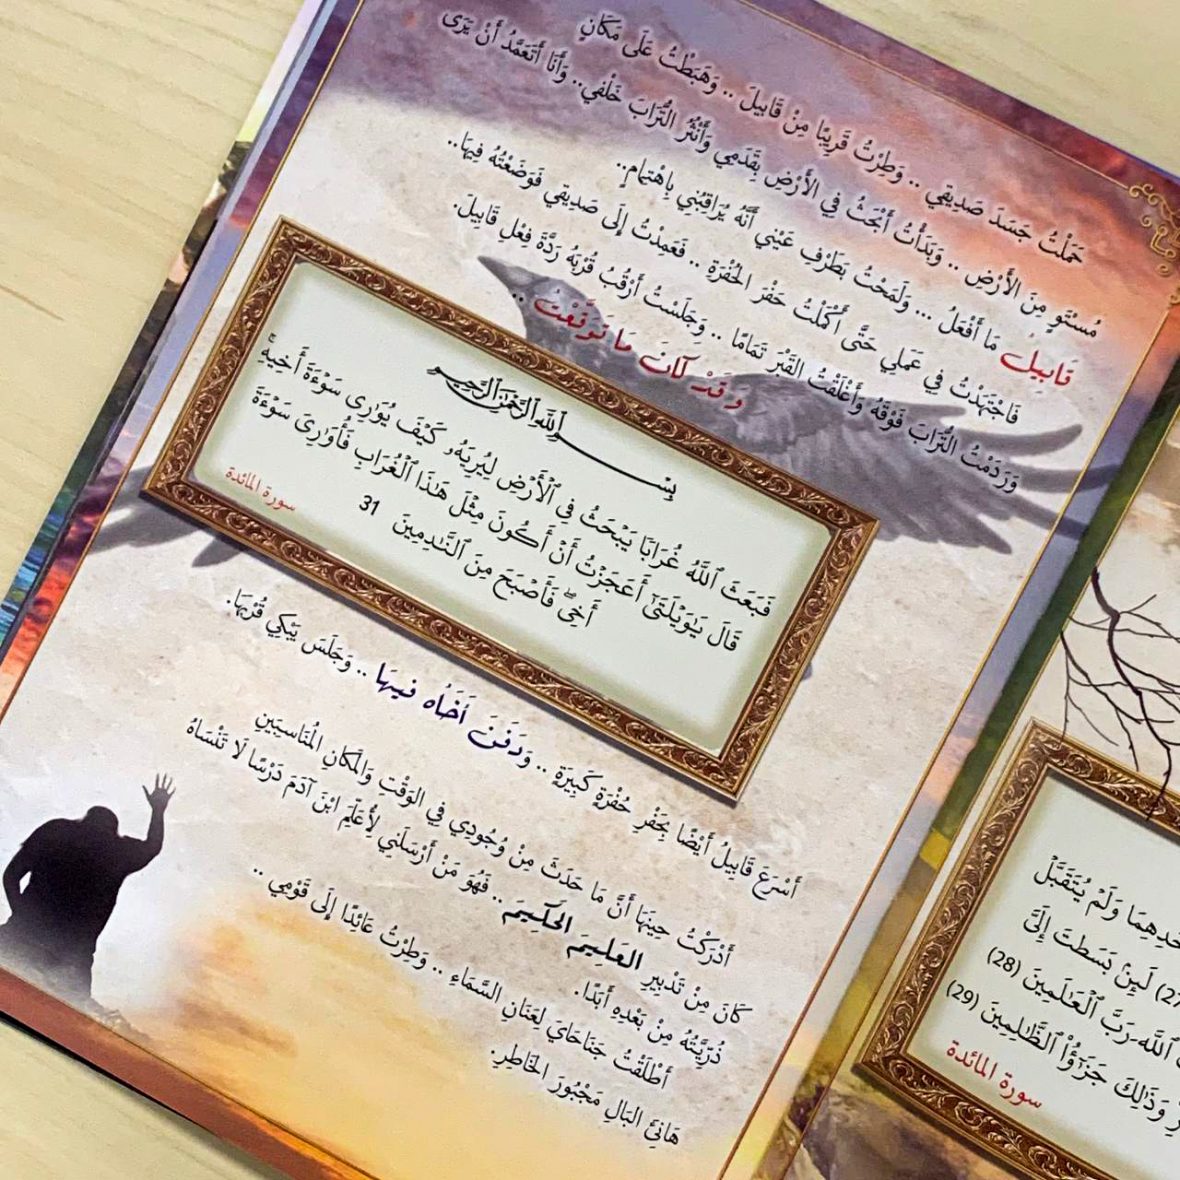 حَمَلْتُ جَسَدَ صَدِيقِي .. وَطِرْتُ قَرِيبًا مِنْ قَابِيلَ .. وَهَبَطْتُ عَلَى مَكَانٍ
مُسْتَوٍ مِنَ الأَرْضِ .. وَبَدَأْتُ أَبْحَثُ فِي الأَرْضِ بِقَدَمِي وَأَنْثُرُ التُّرَابَ خَلْفِي.. وَأَنَا أَتَعَمَّدُ أَنْ يَرَى
قَابِيلُ مَا أَفْعَلُ ... وَلَمَحْتُ بِطَرْفِ عَيْنِي أَنَّهُ يُرَاقِبُنِي بِاهْتِمَامٍ..
فَاجْتَهَدْتُ فِي عَمَلِي حَتَّى أَكْمَلْتُ حَفْرَ الحُفْرَةِ .. فَعَمِدْتُ إِلَى صَدِيقِي فَوَضَعْتُهُ فِيهَا..
وَرَدَمْتُ التُّرَابَ فَوْقَهُ وَأَغْلَقْتُ القَبْرَ تَمَامًا .. وَجَلَسْتُ أَرْقُبُ قُرْبَهُ رَدَّةَ فِعْلِ قَابِيلَ.
وَقَدْ كَانَ مَا تَوَقَّعْتُ ..
بِسْمِ اللَّهِ الرَّحْمَنِ الرَّحِيمِ
فَبَعَثَ ٱللَّهُ غُرَابًا يَبْحَثُ فِي ٱلْأَرْضِ لِيُرِيَهُۥ كَيْفَ يُوَٰرِى سَوْءَةَ أَخِيهِۚ
قَالَ يَٰوَيْلَتَىٰٓ أَعَجَزْتُ أَنْ أَكُونَ مِثْلَ هَٰذَا ٱلْغُرَابِ فَأُوَٰرِىَ سَوْءَةَ
أَخِىۖ فَأَصْبَحَ مِنَ ٱلنَّٰدِمِينَ 31
سورة المائدة
أَسْرَعَ قَابِيلُ أَيْضًا بِحَفْرِ حُفْرَةٍ كَبِيرَةٍ .. وَدَفَنَ أَخَاهُ فِيهَا .. وَجَلَسَ يَبْكِي قُرْبَهَا.
أَدْرَكْتُ حِينَهَا أَنَّ مَا حَدَثَ مِنْ وُجُودِي فِي الوَقْتِ وَالمَكَانِ المُنَاسِبَينِ
كَانَ مِنْ تَدْبِيرِ العَلِيمِ الحَكِيمِ .. فَهُوَ مَنْ أَرْسَلَنِي لِأُعَلِّمَ ابْنَ آدَمَ دَرْسًا لَا تَنْسَاهُ
ذُرِّيَّتُهُ مِنْ بَعْدِهِ أَبَدًا.
أَطْلَقْتُ جَنَاحَايَ لِعَنَانِ السَّمَاءِ .. وَطِرْتُ عَائِدًا إِلَى قَوْمِي ..
هَانِئَ البَالِ مَجْبُورَ الخَاطِرِ.
وَلَمْ يُتَقَبَّلْ
لَئِنۢ بَسَطتَ إِلَىَّ
ٱللَّهَ رَبَّ ٱلْعَٰلَمِينَ (28)
وَذَٰلِكَ جَزَٰٓؤُا۟ ٱلظَّٰلِمِينَ (29)
سورة المائدة